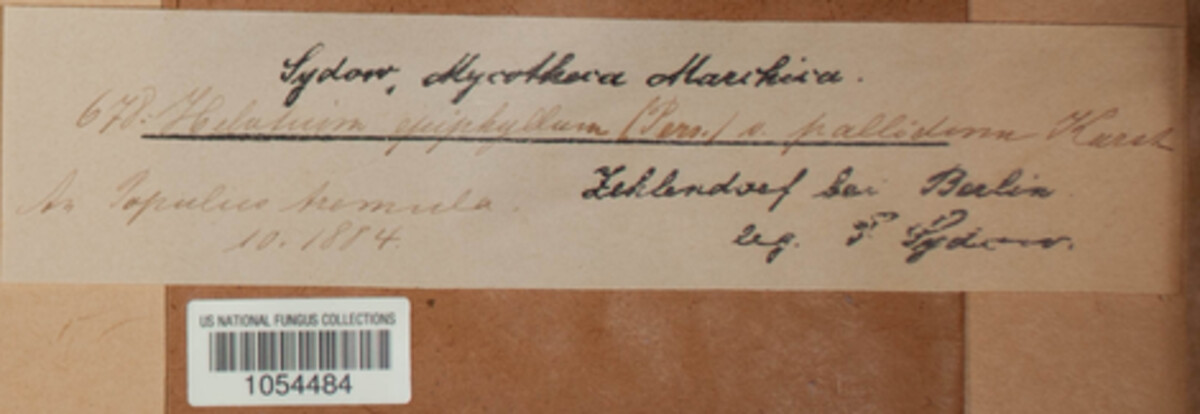 Sydow, Mycotheca Marchica.
678. Helotium epiphyllum (Pers.) v. pallidum Karst
An Populus tremula. Zehlendorf bei Berlin
10. 1884. leg. P Sydow.
US NATIONAL FUNGUS COLLECTIONS
1054484